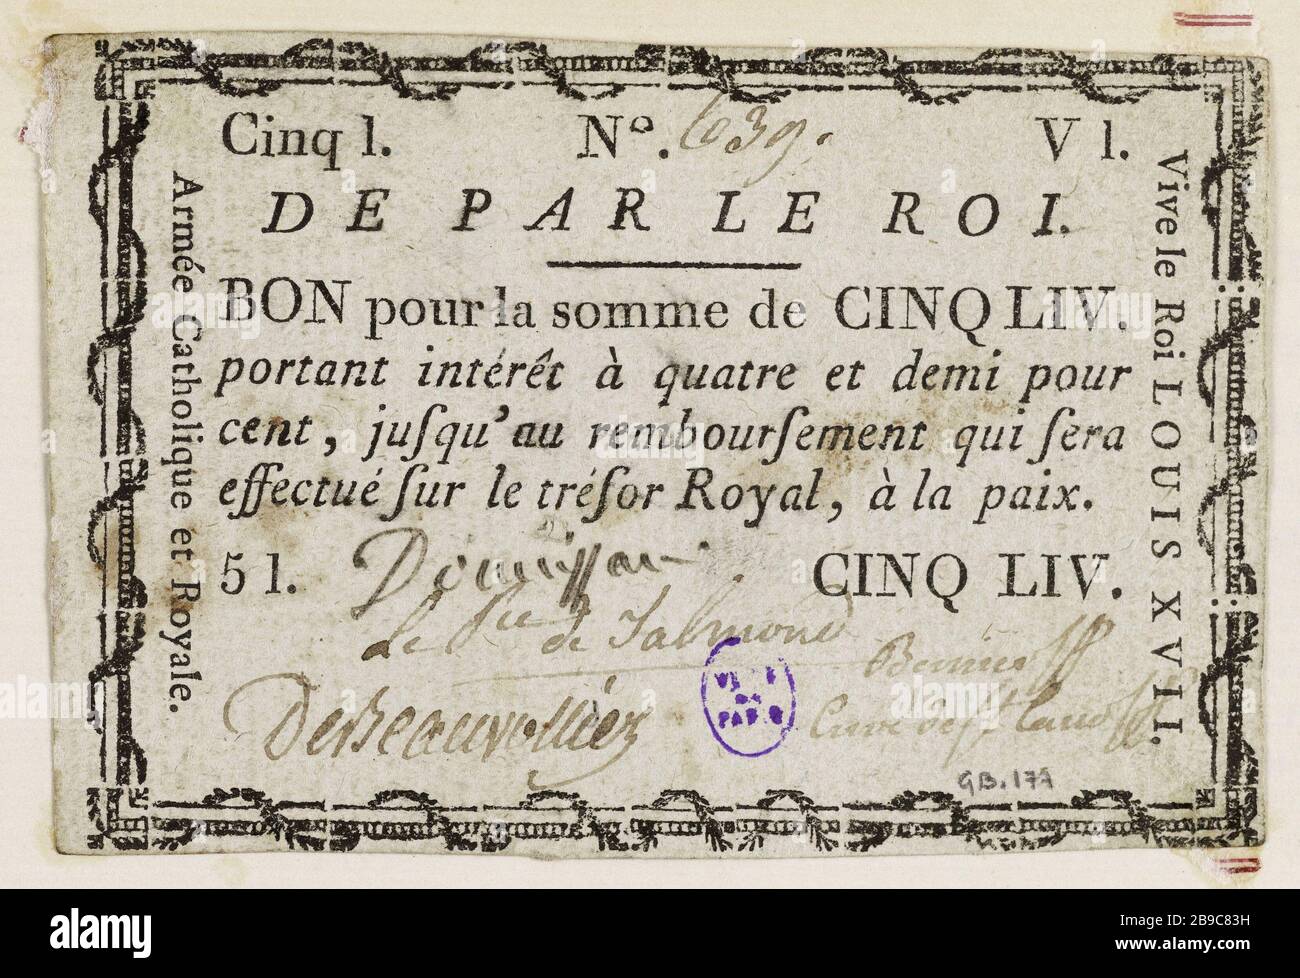 Cinq l. Nº. 639. V l.
DE PAR LE ROI.
BON pour la somme de CINQ LIV.
portant intérêt à quatre et demi pour
cent, juſqu'au rembourſement qui ſera
effectué ſur le tréſor Royal, à la paix.
5 l. CINQ LIV.
Le Pce de Talmond
Bernier
DeBeauvolliér
Curé de St Laud
VILLE
DE
PARIS
GB.177
Armée Catholique et Royale.
Vive le Roi LOUIS XVII.
alamy
Image ID: 2B9C83H
www.alamy.com